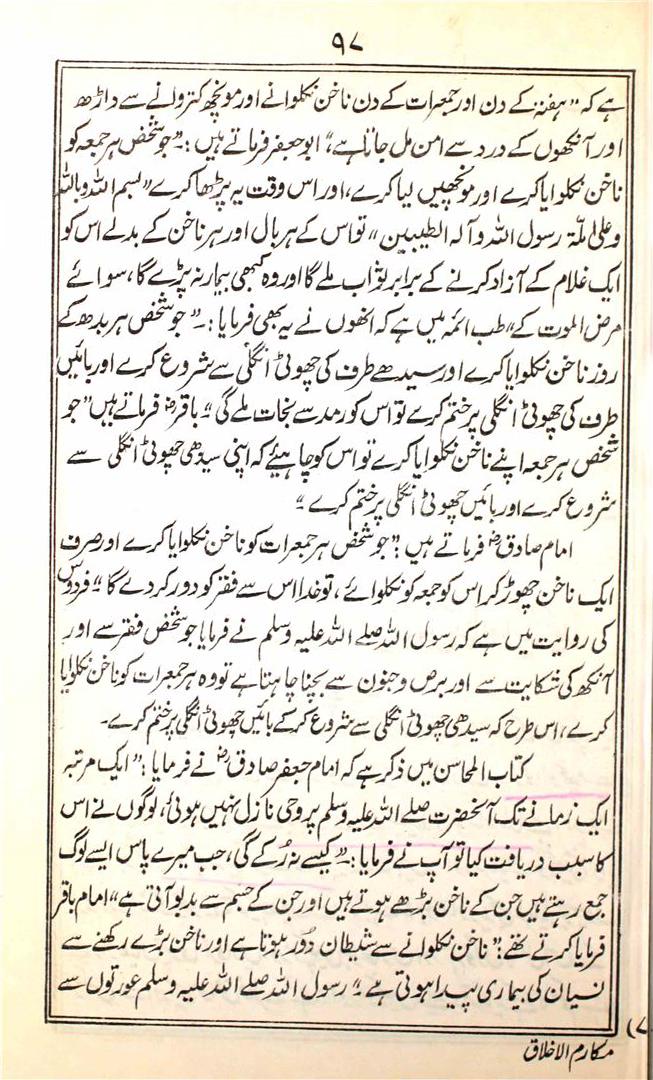 ۹۷
ہے کہ ”ہفتہ کے دن اور جمعرات کے دن ناخن نکلوانے اور مونچھ کتروانے سے داڑھ
اور آنکھوں کے درد سے امن مل جاتا ہے“ ابو جعفر فرماتے ہیں :۔ ”جو شخص ہر جمعہ کو
ناخن نکلوایا کرے اور مونچھیں لیا کرے، اور اس وقت یہ پڑھا کرے ”بسم اللہ وباللہ
وعلیٰ ملّة رسول اللہ وآلہ الطیبین“ تو اس کے ہر بال اور ہر ناخن کے بدلے اس کو
ایک غلام کے آزاد کرنے کے برابر ثواب ملے گا اور وہ کبھی بیمار نہ پڑے گا، سوائے
مرض الموت کے“ طب ائمہ میں ہے کہ انھوں نے یہ بھی فرمایا :۔ ”جو شخص ہر بدھ کے
روز ناخن نکلوایا کرے اور سیدھے طرف کی چھوٹی انگلی سے شروع کرے اور بائیں
طرف کی چھوٹی انگلی پر ختم کرے تو اس کو رمد سے نجات ملے گی“ باقرؓ فرماتے ہیں ”جو
شخص ہر جمعہ اپنے ناخن نکلوایا کرے تو اس کو چاہیئے کہ اپنی سیدھی چھوٹی انگلی سے
شروع کرے اور بائیں چھوٹی انگلی پر ختم کرے“
امام صادقؓ فرماتے ہیں :”جو شخص ہر جمعرات کو ناخن نکلوایا کرے اور صرف
ایک ناخن چھوڑ کر اس کو جمعہ کو نکلوائے، تو خدا اس سے فقر کو دور کر دے گا“ فردوس
کی روایت میں ہے کہ رسول اللہ صلے اللہ علیہ وسلم نے فرمایا جو شخص فقر سے اور
آنکھ کی شکایت سے اور برص و جنون سے بچنا چاہتا ہے تو وہ ہر جمعرات کو ناخن نکلوایا
کرے، اس طرح کہ سیدھی چھوٹی انگلی سے شروع کرکے بائیں چھوٹی انگلی پر ختم کرے۔
کتاب المحاسن میں ذکر ہے کہ امام جعفر صادقؓ نے فرمایا :”ایک مرتبہ
ایک زمانے تک آنحضرت صلے اللہ علیہ وسلم پر وحی نازل نہیں ہوئی، لوگوں نے اس
کا سبب دریافت کیا تو آپ نے فرمایا :۔ ”کیسے نہ رُکے گی، جب میرے پاس ایسے لوگ
جمع رہتے ہیں جن کے ناخن بڑھے ہوتے ہیں اور جن کے جسم سے بدبو آتی ہے“ امام باقر
فرمایا کرتے تھے :”ناخن نکلوانے سے شیطان دور ہوتا ہے اور ناخن بڑے رکھنے سے
نسیان کی بیماری پیدا ہوتی ہے“ رسول اللہ صلے اللہ علیہ وسلم عورتوں سے
مکارم الاخلاق